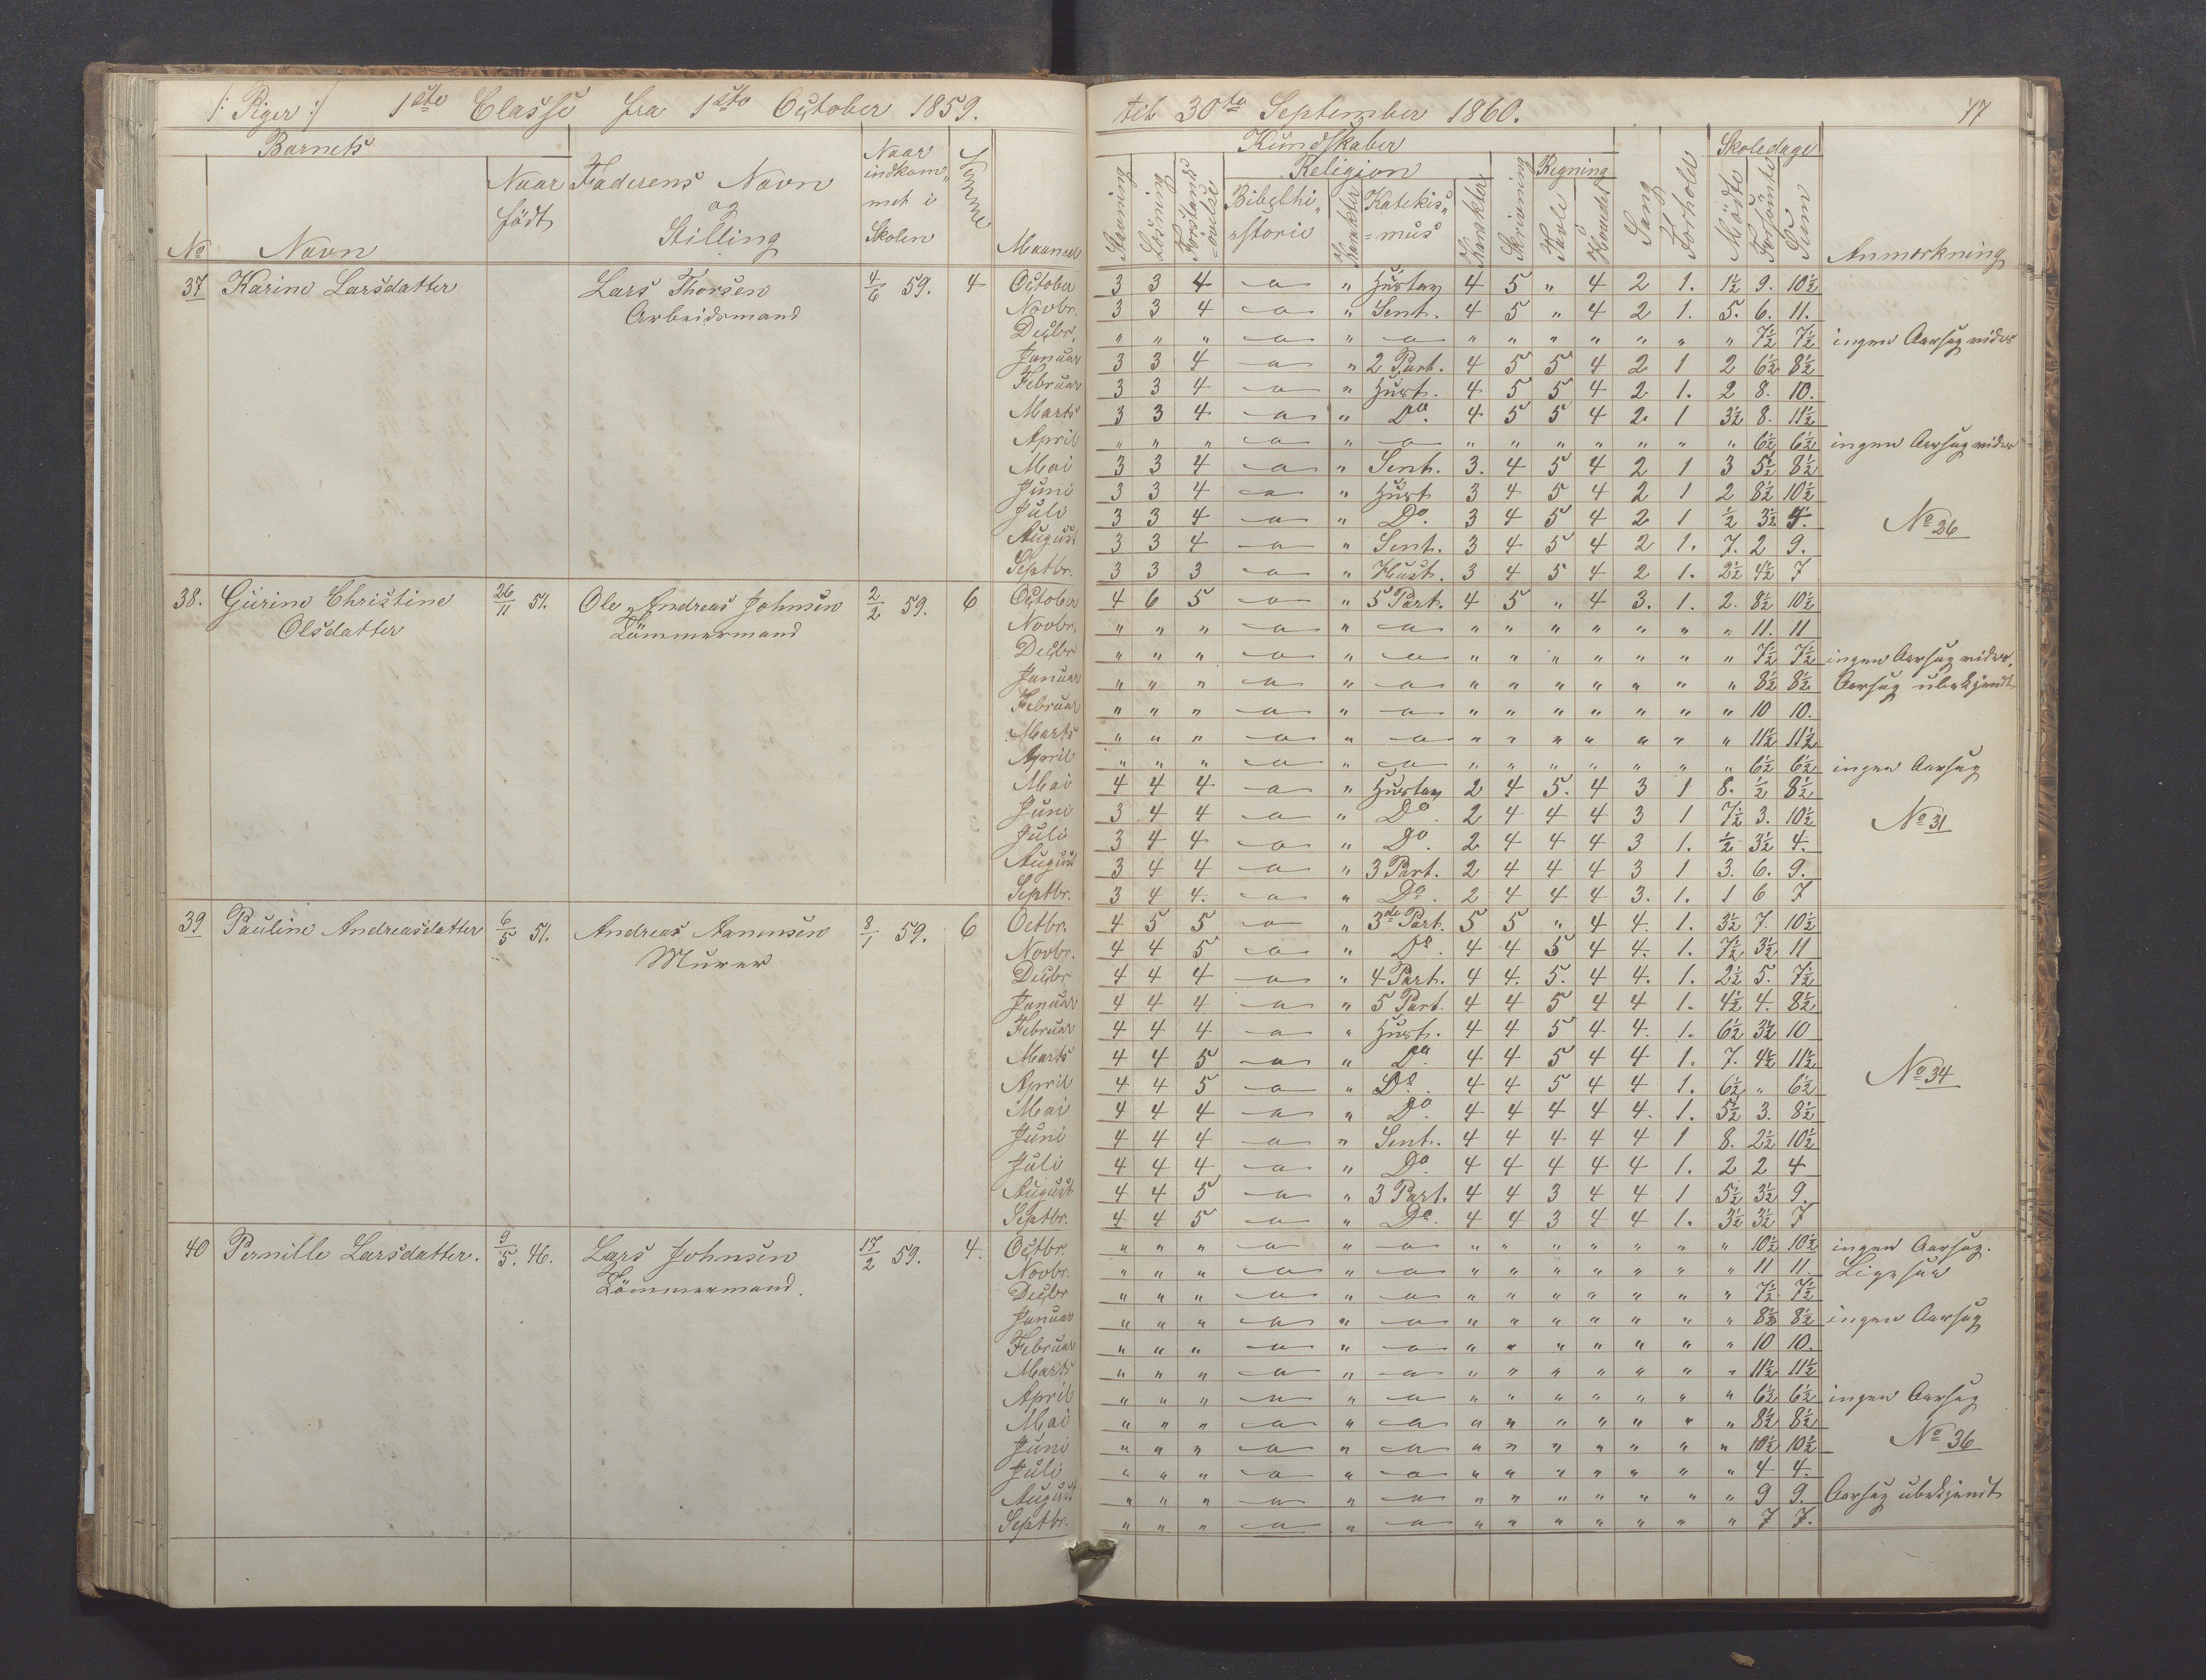 /: Piger :/ 1ste Classe fra 1ste October 1859. til 30te September 1860. 47
Barnets Kundskaber Skoledage
No Navn Naar født Faderens Navn og Stilling Naar indkommet i Skolen Nemme Maaned Stavning Læsning Forstandsøvelse Religion Bibelhistorie Karakter Katekismus Karakter Skrivning Regning Tavle Hoved Sang Forhold Mødte Forsømte Sum Anmerkning
37 Karine Larsdatter Lars Thorsen 4/6 59. 4 October 3 3 4 " " Hustav 4 5 " 4 2 1. 1½ 9. 10½
Arbeidsmand Novbr. 3 3 4 " " Sent. 4 5 " 4 2 1. 5. 6. 11.
Decbr. " " " " " " " " " " " " " 7½ 7½ ingen Aarsag vides
Januar 3 3 4 " " 2 Part. 4 5 5 4 2 1 2 6½ 8½
Februar 3 3 4 " " Hust. 4 5 5 4 2 1. 2 8. 10.
Marts 3 3 4 " " Do. 4 5 5 4 2 1 3½ 8. 11½
April " " " " " " " " " " " " " 6½ 6½ ingen Aarsag vides
Mai 3 3 4 " " Sent. 3. 4 5 4 2 1 3 5½ 8½
Juni 3 3 4 " " Hust 3 4 5 4 2 1 2 8½ 10½
Juli 3 3 4 " " Do. 3 4 5 4 2 1 ½ 3½ 4. No 26
August 3 3 4 " " Sent. 3 4 5 4 2 1. 7. 2 9.
Septbr. 3 3 3 " " Hust. 3 4 5 4 2 1. 2½ 4½ 7
38. Gurine Christine 26/11 51. Ole Andreas Johnsen 2/2 59. 6 October 4 6 5 " " 5 Part. 4 5 " 4 3. 1. 2. 8½ 10½
Olsdatter Tømmermand Novbr. " " " " " " " " " " " " " 11. 11
Decbr " " " " " " " " " " " " " 7½ 7½ ingen Aarsag vides.
Januar " " " " " " " " " " " " " 8½ 8½ Aarsag ubekjendt
Februar " " " " " " " " " " " " " 10 10.
Marts " " " " " " " " " " " " " 11½ 11½
April " " " " " " " " " " " " " 6½ 6½ ingen Aarsag
Mai 4 4 4 " " Hustav 2 4 5. 4 3 1 8. ½ 8½
Juni 3 4 4 " " Do. 2 4 4 4 3 1 7½ 3. 10½ No 31
Juli 3 4 4 " " Do. 2 4 4 4 3 1. ½ 3½ 4.
August 3 4 4 " " 3 Part. 2 4 4 4 3 1 3. 6. 9.
Septbr. 3 4 4. " " Do. 2 4 4 4 3. 1. 1 6 7
39 Pauline Andreasdatter 6/5 51. Andreas Aanensen 8/1 59. 6 Octbr. 4 5 5 " " 3de Part. 5 5 " 4 4. 1. 3½ 7. 10½
Murer Novbr. 4 4 5 " " Do. 4 4 5 4 4. 1. 7½ 3½ 11
Decbr 4 4 4 " " 4 Part. 4 4. 5. 4 4. 1. 2½ 5. 7½
Januar 4 4 4 " " 5 Part. 4 4 5 4 4 1. 4½ 4. 8½
Februar 4 4 4 " " Hust. 4 4 5 4 4. 1. 6½ 3½ 10
Marts 4 4 5 " " Do. 4 4 5 4 4 1. 7. 4½ 11½
April 4 4 5 " " Do. 4 4 5 4 4 1. 6½ " 6½ No 34
Mai 4 4 4 " " Do. 4 4 4 4 4. 1. 5½ 3. 8½
Juni 4 4 4 " " Sent. 4 4 4 4 4 1 8. 2½ 10½
Juli 4 4 4 " " Do. 4 4 4 4 4 1. 2 2 4
August 4 4 5 " " 3 Part. 4 4 3 4 4 1 5½ 3½ 9.
Septbr. 4 4 5 " " Do. 4 4 3 4 4 1. 3½ 3½ 7
40 Pernille Larsdatter. 9/5. 46. Lars Johnsen 17/2 59. 4. Octbr. " " " " " " " " " " " " " 10½ 10½ ingen Aarsag.
Tømmermand. Novbr. " " " " " " " " " " " " " 11 11. Ligesaa
Decbr " " " " " " " " " " " " " 7½ 7½
Januar " " " " " " " " " " " " " 8½ 8½ ingen Aarsag
Februar " " " " " " " " " " " " " 10 10.
Marts " " " " " " " " " " " " " 11½ 11½
April " " " " " " " " " " " " " 6½ 6½ ingen Aarsag
Mai " " " " " " " " " " " " " 8½ 8½
Juni " " " " " " " " " " " " " 10½ 10½ No 36
Juli " " " " " " " " " " " " " 4 4.
August " " " " " " " " " " " " " 9 9. Aarsag ubekjendt
Septbr. " " " " " " " " " " " " " 7 7.